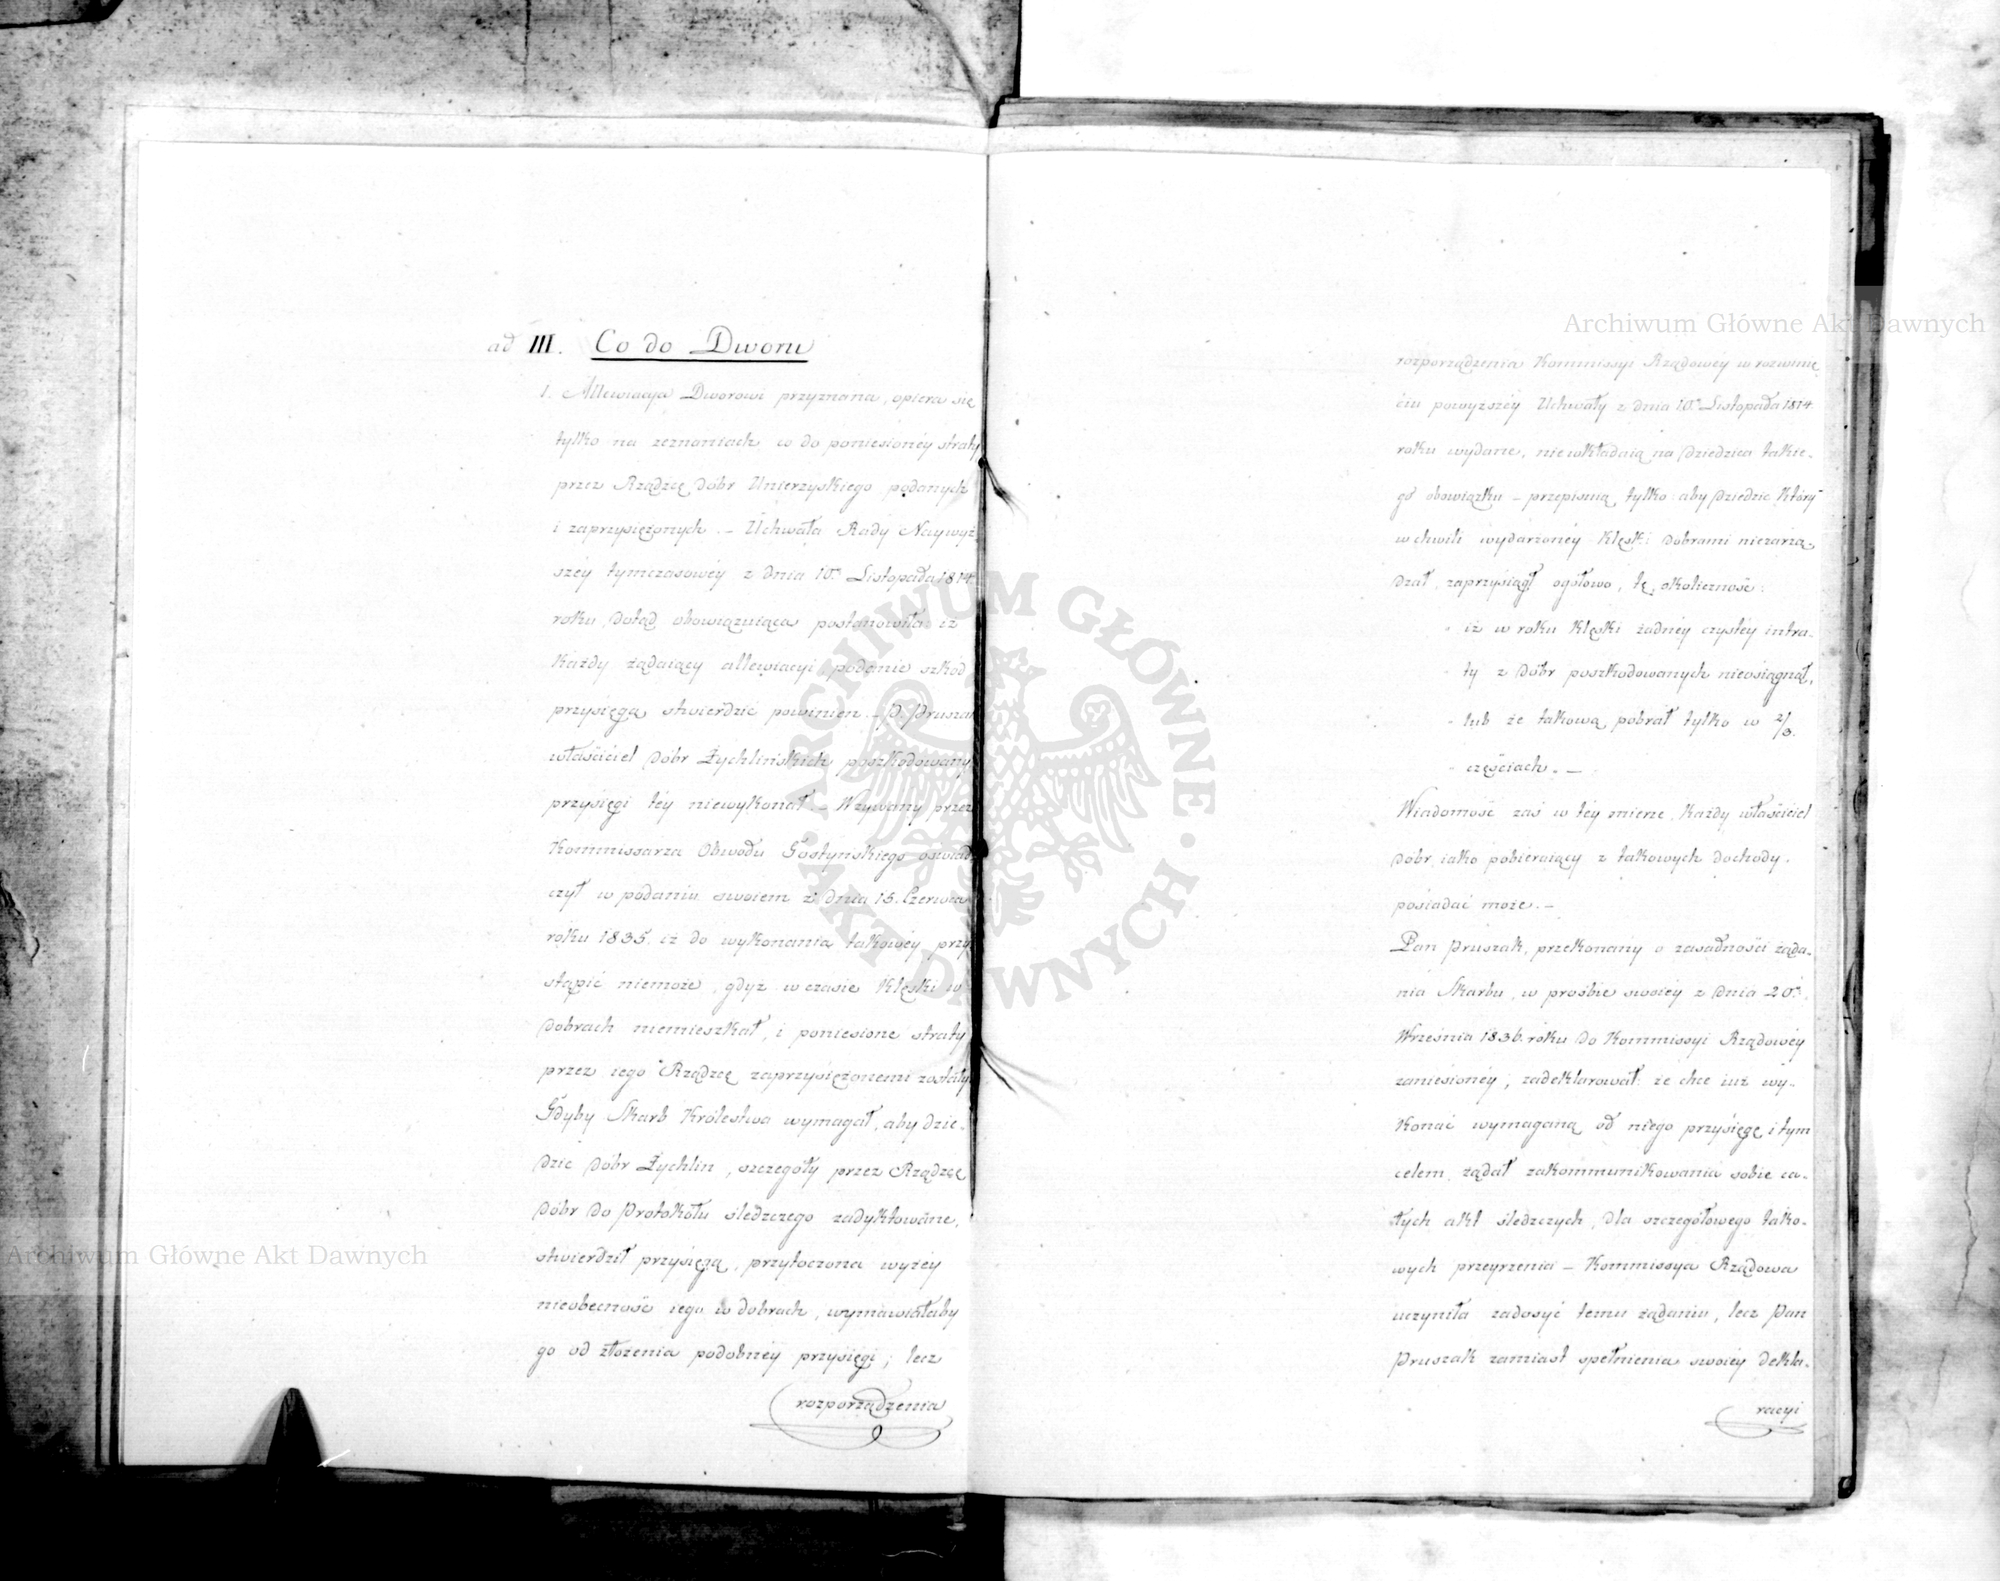 ad III. Co do Dworu
1. Allewiacya Dworowi przyznana, opiera się
tylko na zeznaniach co do poniesionéy straty
przez Rządzcę dóbr Unierzyskiego podanych
i zaprzysiężonych. – Uchwała Rady Naywyż
széy tymczasowéy z dnia 10. Listopada 1814.
roku, dotąd obowiązuiąca postanowiła: iż
każdy żądaiący allewiacyi, podanie szkód
przysięgą stwierdzić powinien. – P. Pruszak
właściciel dóbr Żychlińskich poszkodowany,
przysięgi téy niewykonał. – Wzywany przez
Kommissarza Obwodu Gostyńskiego oświad
czył w podaniu swoiem z dnia 15. Czerwca
roku 1835. iż do wykonania takowéy przy
stąpić niemoże, gdyż w czasie klęski w
dobrach niemieszkał, i poniesione straty
przez iego Rządzcę zaprzysiężonemi zostały.
Gdyby Skarb Królestwa wymagał, aby dzie-
dzic dóbr Żychlin, szczegóły przez Rządzcę
dóbr do Protokołu śledczego zadyktowane,
stwierdził przysięgą, przytoczona wyżéy
nieobecność iego w dobrach, wymawiałaby
go od złożenia podobnéy przysięgi; lecz
rozporządzenia
rozporządzenia Kommissyi Rządowéy w rozwinię
ciu powyższéy Uchwały z dnia 10. Listopada 1814.
roku wydane, niewkładaią na Dziedzica takie-
go obowiązku – przepisuią tylko: aby Dziedzic który
w chwili wydarzonéy klęski dobrami niezarzą-
dzał, zaprzysiągł ogółowo, tę okoliczność:
- iż w roku klęski żadnéy czystéy intra-
- ty z dóbr poszkodowanych nieosiągnął,
- lub że takową pobrał tylko w 2/3.
- częściach. –
Wiadomość zaś w téy mierze, każdy właściciel
dóbr, iako pobieraiący z takowych dochody.
posiadać może. –
Pan Pruszak, przekonany o zasadności żąda-
nia Skarbu, w prośbie swoiéy z dnia 20.
Września 1836. roku do Kommissyi Rządowéy
zaniesionéy, zadeklarował: że chce iuż wy-
konać wymaganą od niego przysięgę i tym
celem, żądał zakommunikowania sobie ca-
łych akt śledczych, dla szczegółowego tako-
wych przeyrzenia – Kommissya Rządowa
uczyniła zadosyć temu żądaniu, lecz Pan
Pruszak zamiast spełnienia swoiéy dekla-
racyi
Archiwum Główne Akt Dawnych
Archiwum Główne Akt Dawnych
ARCHIWUM GŁÓWNE · AKT DAWNYCH ·